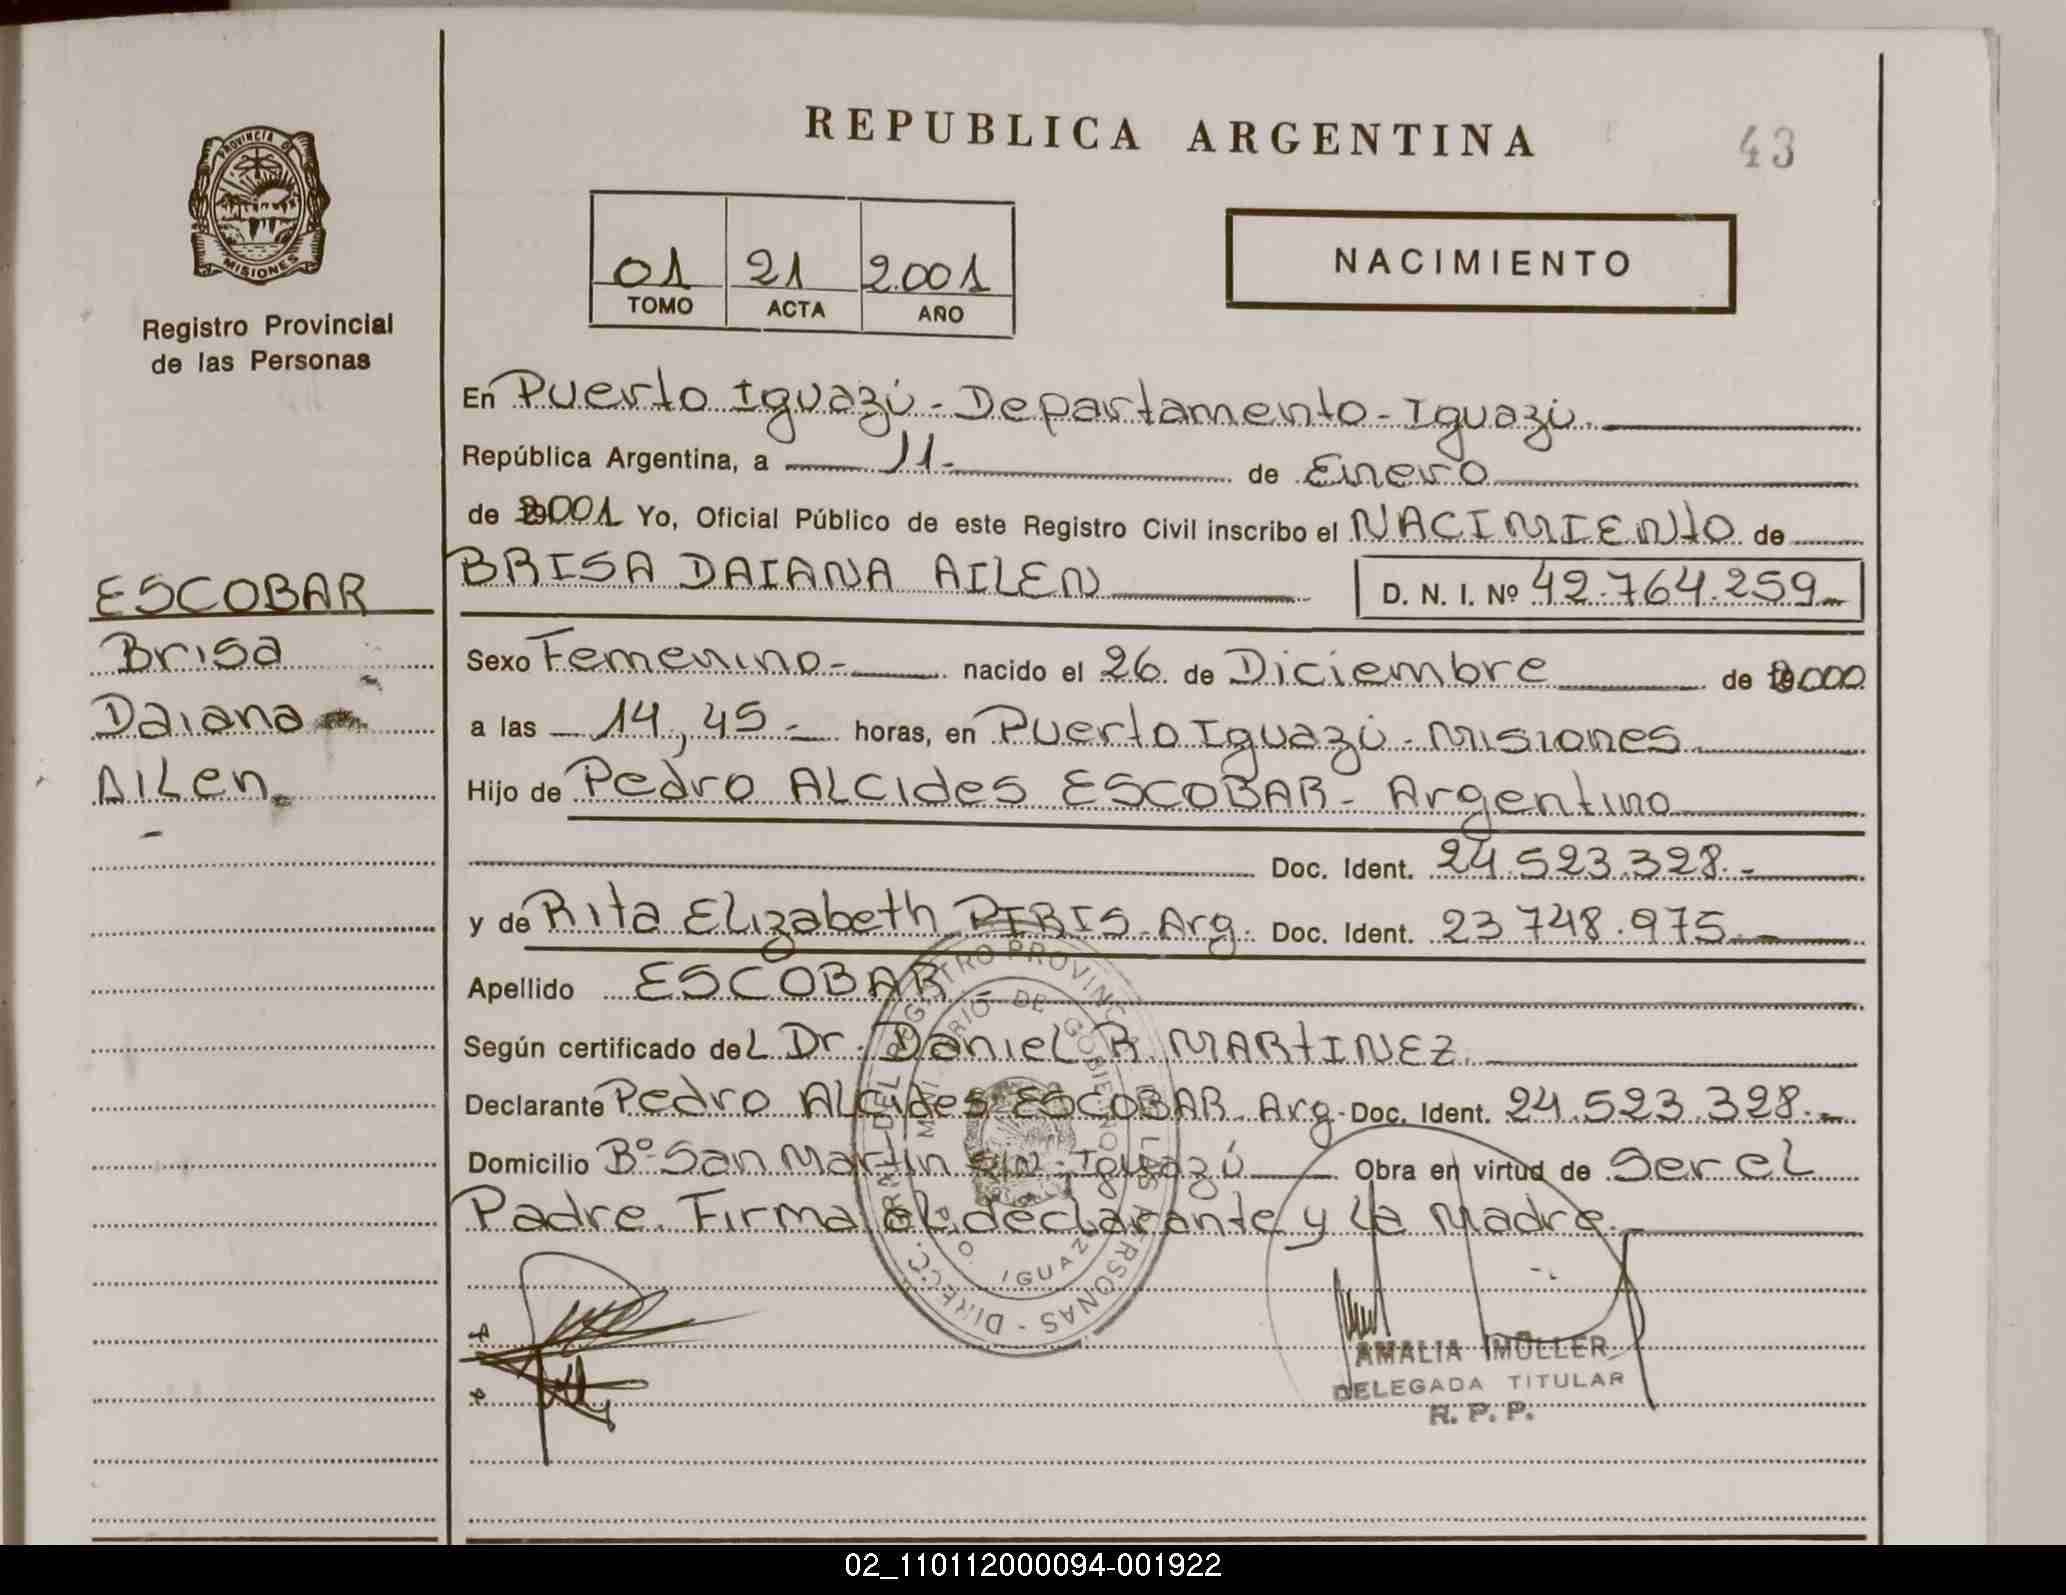 REPUBLICA ARGENTINA
43
PROVINCIA D
MISIONES
Registro Provincial
de las Personas
01 21 2.001
TOMO ACTA AÑO
NACIMIENTO
En Puerto Iguazú - Departamento - Iguazú.
República Argentina, a 11- de Enero
de 2001 Yo, Oficial Público de este Registro Civil inscribo el NACIMIENTO de
BRISA DAIANA AILEN D. N. I. Nº 42.764.259
ESCOBAR
Brisa
Daiana
Ailen
Sexo Femenino- nacido el 26 de Diciembre de 2000
a las 14,45 - horas, en Puerto Iguazú - Misiones
Hijo de Pedro ALCides ESCOBAR - Argentino
Doc. Ident. 24.523.328.-
y de Rita Elizabeth PIRIS - Arg. Doc. Ident. 23 748.975.-
Apellido ESCOBAR -
Según certificado del Dr. Daniel R. MARTINEZ.
Declarante Pedro ALCides ESCOBAR. Arg- Doc. Ident. 24.523.328.-
Domicilio Bº San Martin S/N - Iguazú Obra en virtud de Ser el
Padre. Firma el declarante y La Madre.-
DIRECC. GRAL DEL REGISTRO PROVINC. LAS PERSONAS -
MINISTERIO DE GOBIERNO
PTO. IGUAZU
AMALIA MÜLLER
DELEGADA TITULAR
R. P. P.
02_110112000094-001922